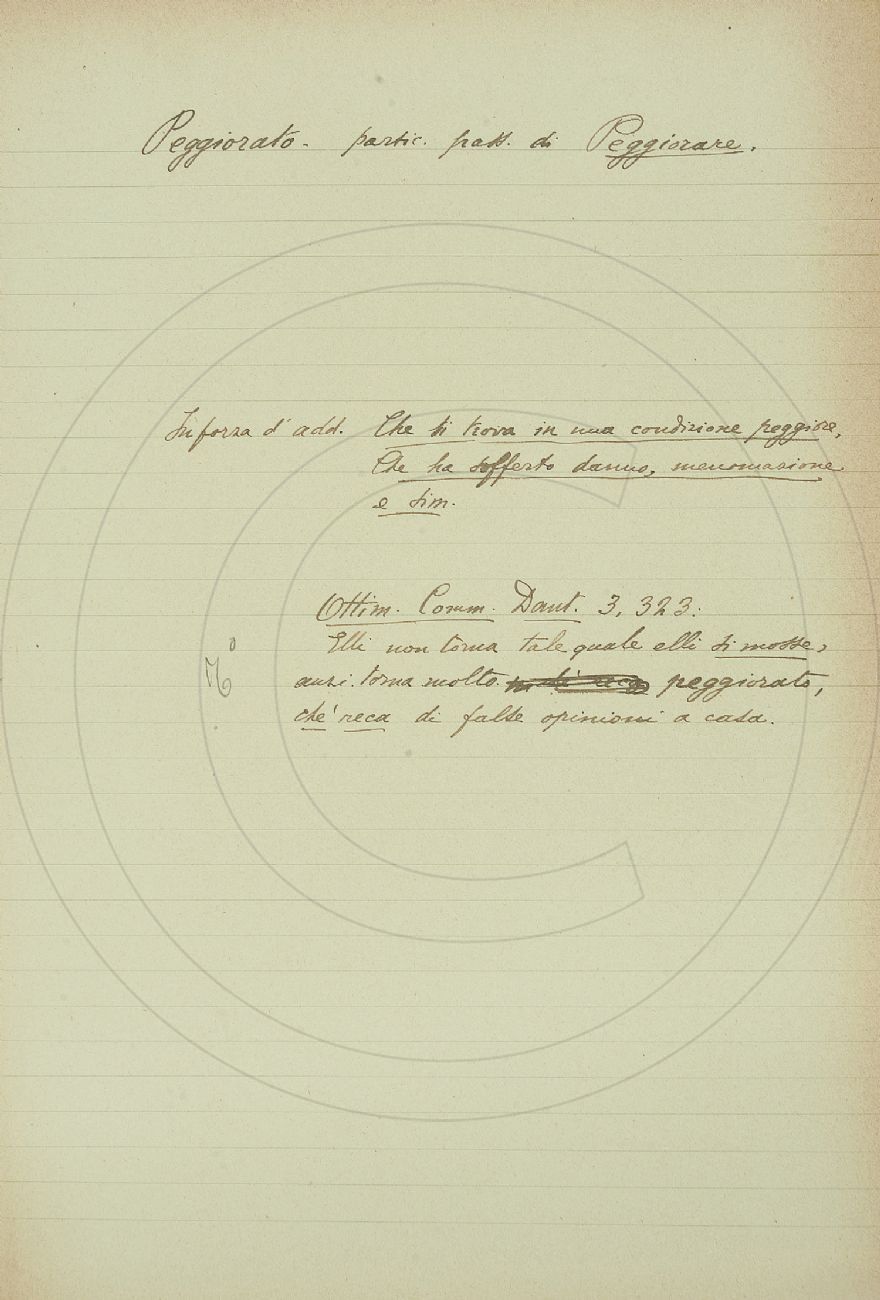 Peggiorato - partic. pass. di Peggiorare.
In forza d' add. Che si trova in una condizione peggiore,
Che ha sofferto danno, menomazione
e sim.
Ottim. Comm. Dant. 3, 323:
Elli non torna tale quale elli si mosse,
anzi torna molto peggiorato,
ché reca di false opinioni a casa.